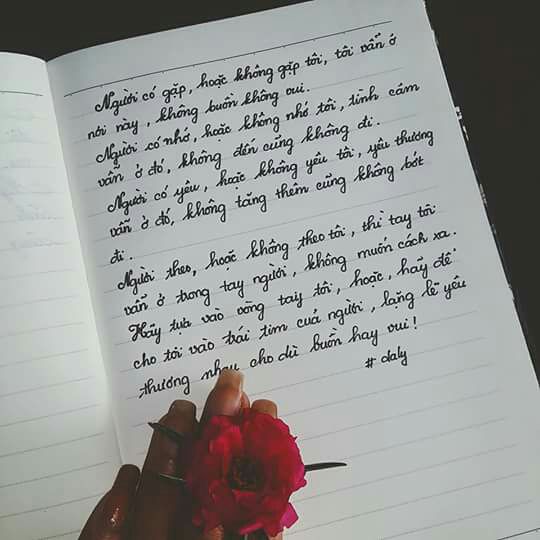 Người có gặp, hoặc không gặp tôi, tôi vẫn ở
nơi này, không buồn không vui.
Người có nhớ, hoặc không nhớ tôi, tình cảm
vẫn ở đó, không đến cũng không đi.
Người có yêu, hoặc không yêu tôi, yêu thương
vẫn ở đó, không tăng thêm cũng không bớt
đi.
Người theo, hoặc không theo tôi, thì tay tôi
vẫn ở trong tay người, không muốn cách xa.
Hãy tựa vào vòng tay tôi, hoặc, hãy để
cho tôi vào trái tim của người, lặng lẽ yêu
thương nhau cho dù buồn hay vui!
# daly